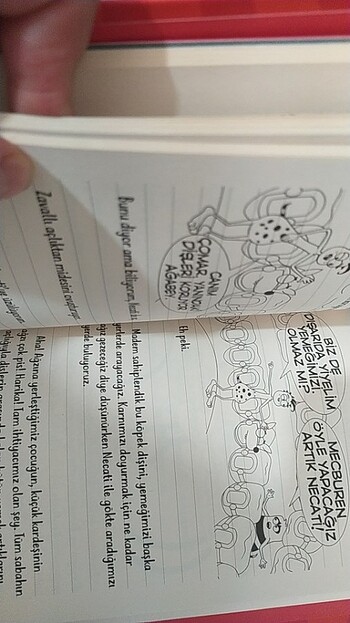 CANIM
ÇOMAR YANDAKİ
DİŞLERİ KORUYOR
AĞABEY.
Bunu diyor ama biliyorum,
Zavallı açlıktan midesini ovuşturup
BİZ DE
DIŞARIDA YİYELİM
YEMEĞİMİZİ
OLMAZ MI?
MECBUREN
ÖYLE YAPACAĞIZ
ARTIK NECATİ!
Eh peki.
Madem sahiplendik bu köpek dişini, yemeğimizi başka
yerlerde arayacağız. Karnımızı doyurmak için ne kadar
gezeceğiz diye düşünürken Necati ile gökte aradığımızı
yerde buluyoruz.
Aha! Ağzına yerleştiğimiz çocuğun, küçük kardeşinin
ağzı çok pis! Harika! Tam ihtiyacımız olan şey. Tüm sabahın
dişlerin arasında